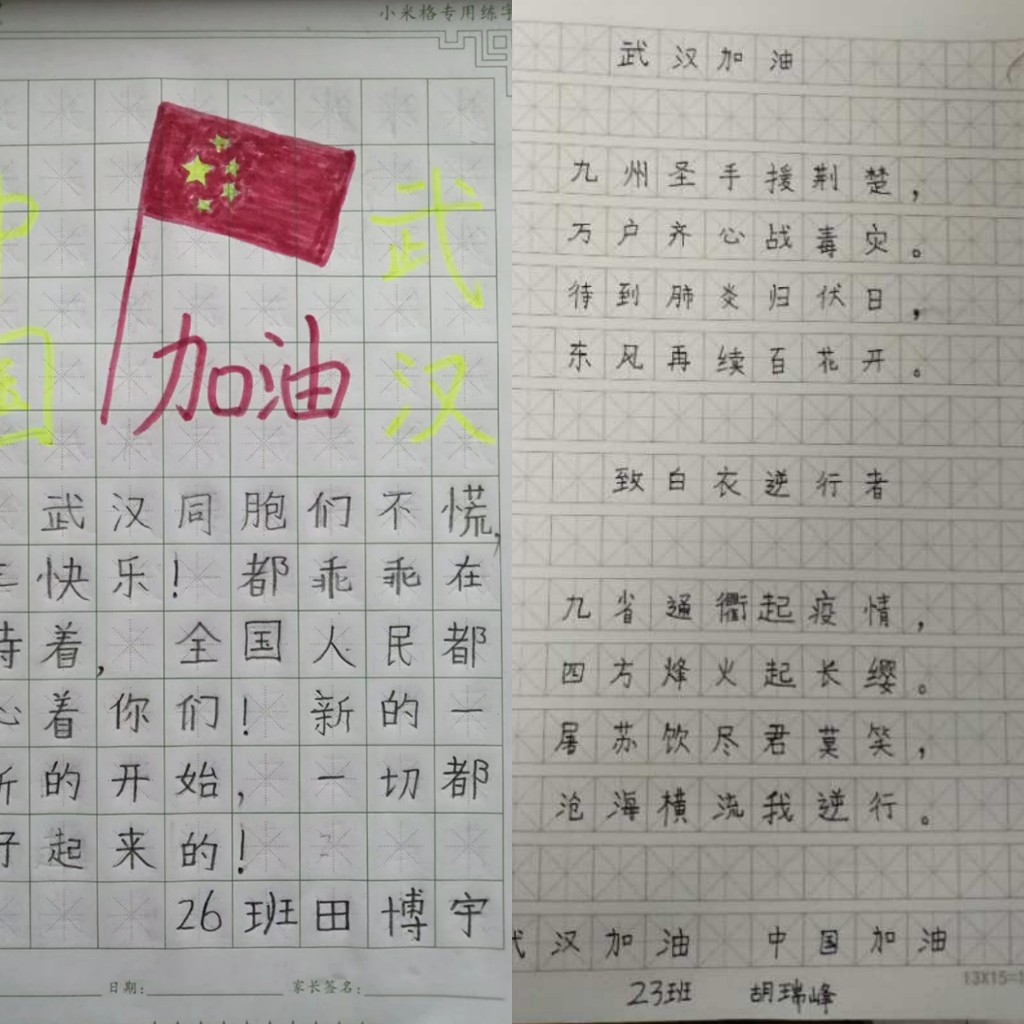 小米格专用练字
中国
武汉
加油
武汉同胞们不慌,
快乐! 都乖乖在
待着, 全国人民都
心着你们! 新的一
新的开始, 一切都
好起来的!
26班田博宇
日期:
家长签名:
武汉加油
九州圣手援荆楚,
万户齐心战毒灾。
待到肺炎归伏日,
东风再续百花开。
致白衣逆行者
九省通衢起疫情,
四方烽火起长缨。
屠苏饮尽君莫笑,
沧海横流我逆行。
武汉加油 中国加油
13X15=1
23班 胡瑞峰